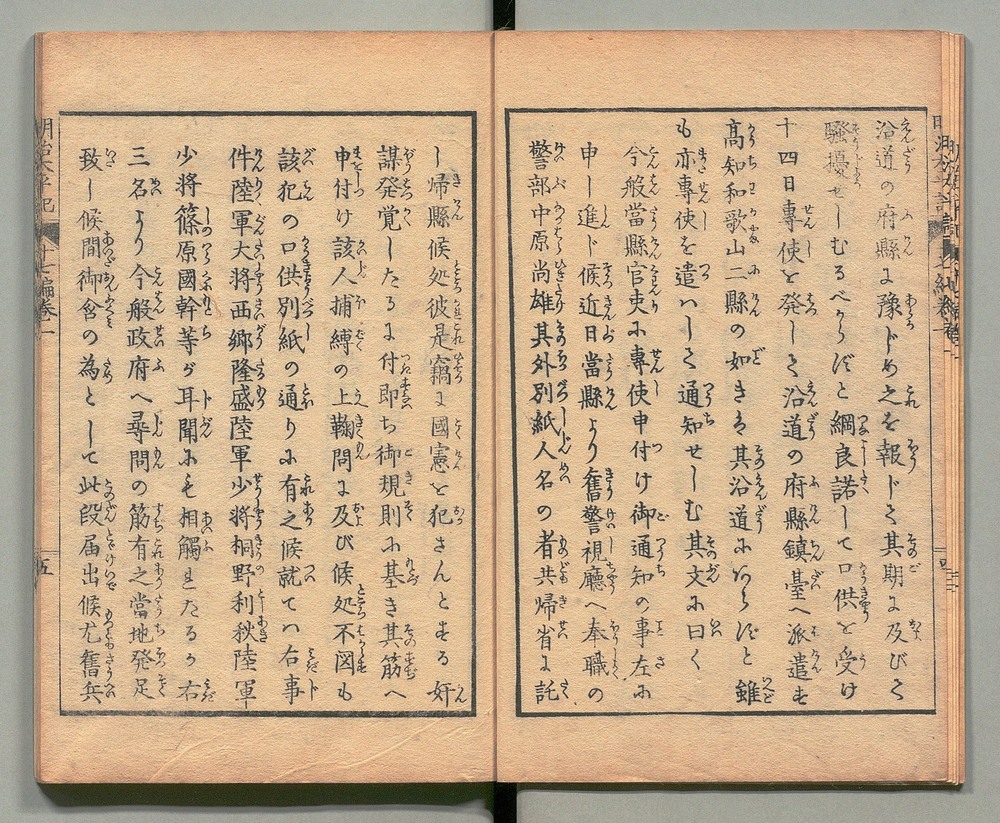 沿道の府縣に豫じめ之を報じて其期に及びて
騒擾せしむるべからずと綱良諾して口供を受け
十四日專使を発して沿道の府縣鎮臺へ派遣す
高知和歌山二縣の如きは其沿道にあらずと雖
も亦專使を遣はして通知せしむ其文に曰く
今般當縣官吏に專使申付け御通知の事左に
申し進じ候近日當縣より奮警視廳へ奉職の
警部中原尚雄其外別紙人名の者共帰省に託
し帰縣候処彼是竊に國憲を犯さんとする奸
謀発覚したるに付即ち御規則に基き其筋へ
申付け該人捕縛の上鞠問に及び候処不図も
該犯の口供別紙の通りに有之候就ては右事
件陸軍大将西郷隆盛陸軍少将桐野利秋陸軍
少将篠原國幹等が耳聞にも相觸れたるか右
三名より今般政府へ尋問の筋有之當地発足
致し候間御含の為として此段届出候尤奮兵
明治太平記
十七編巻一
五